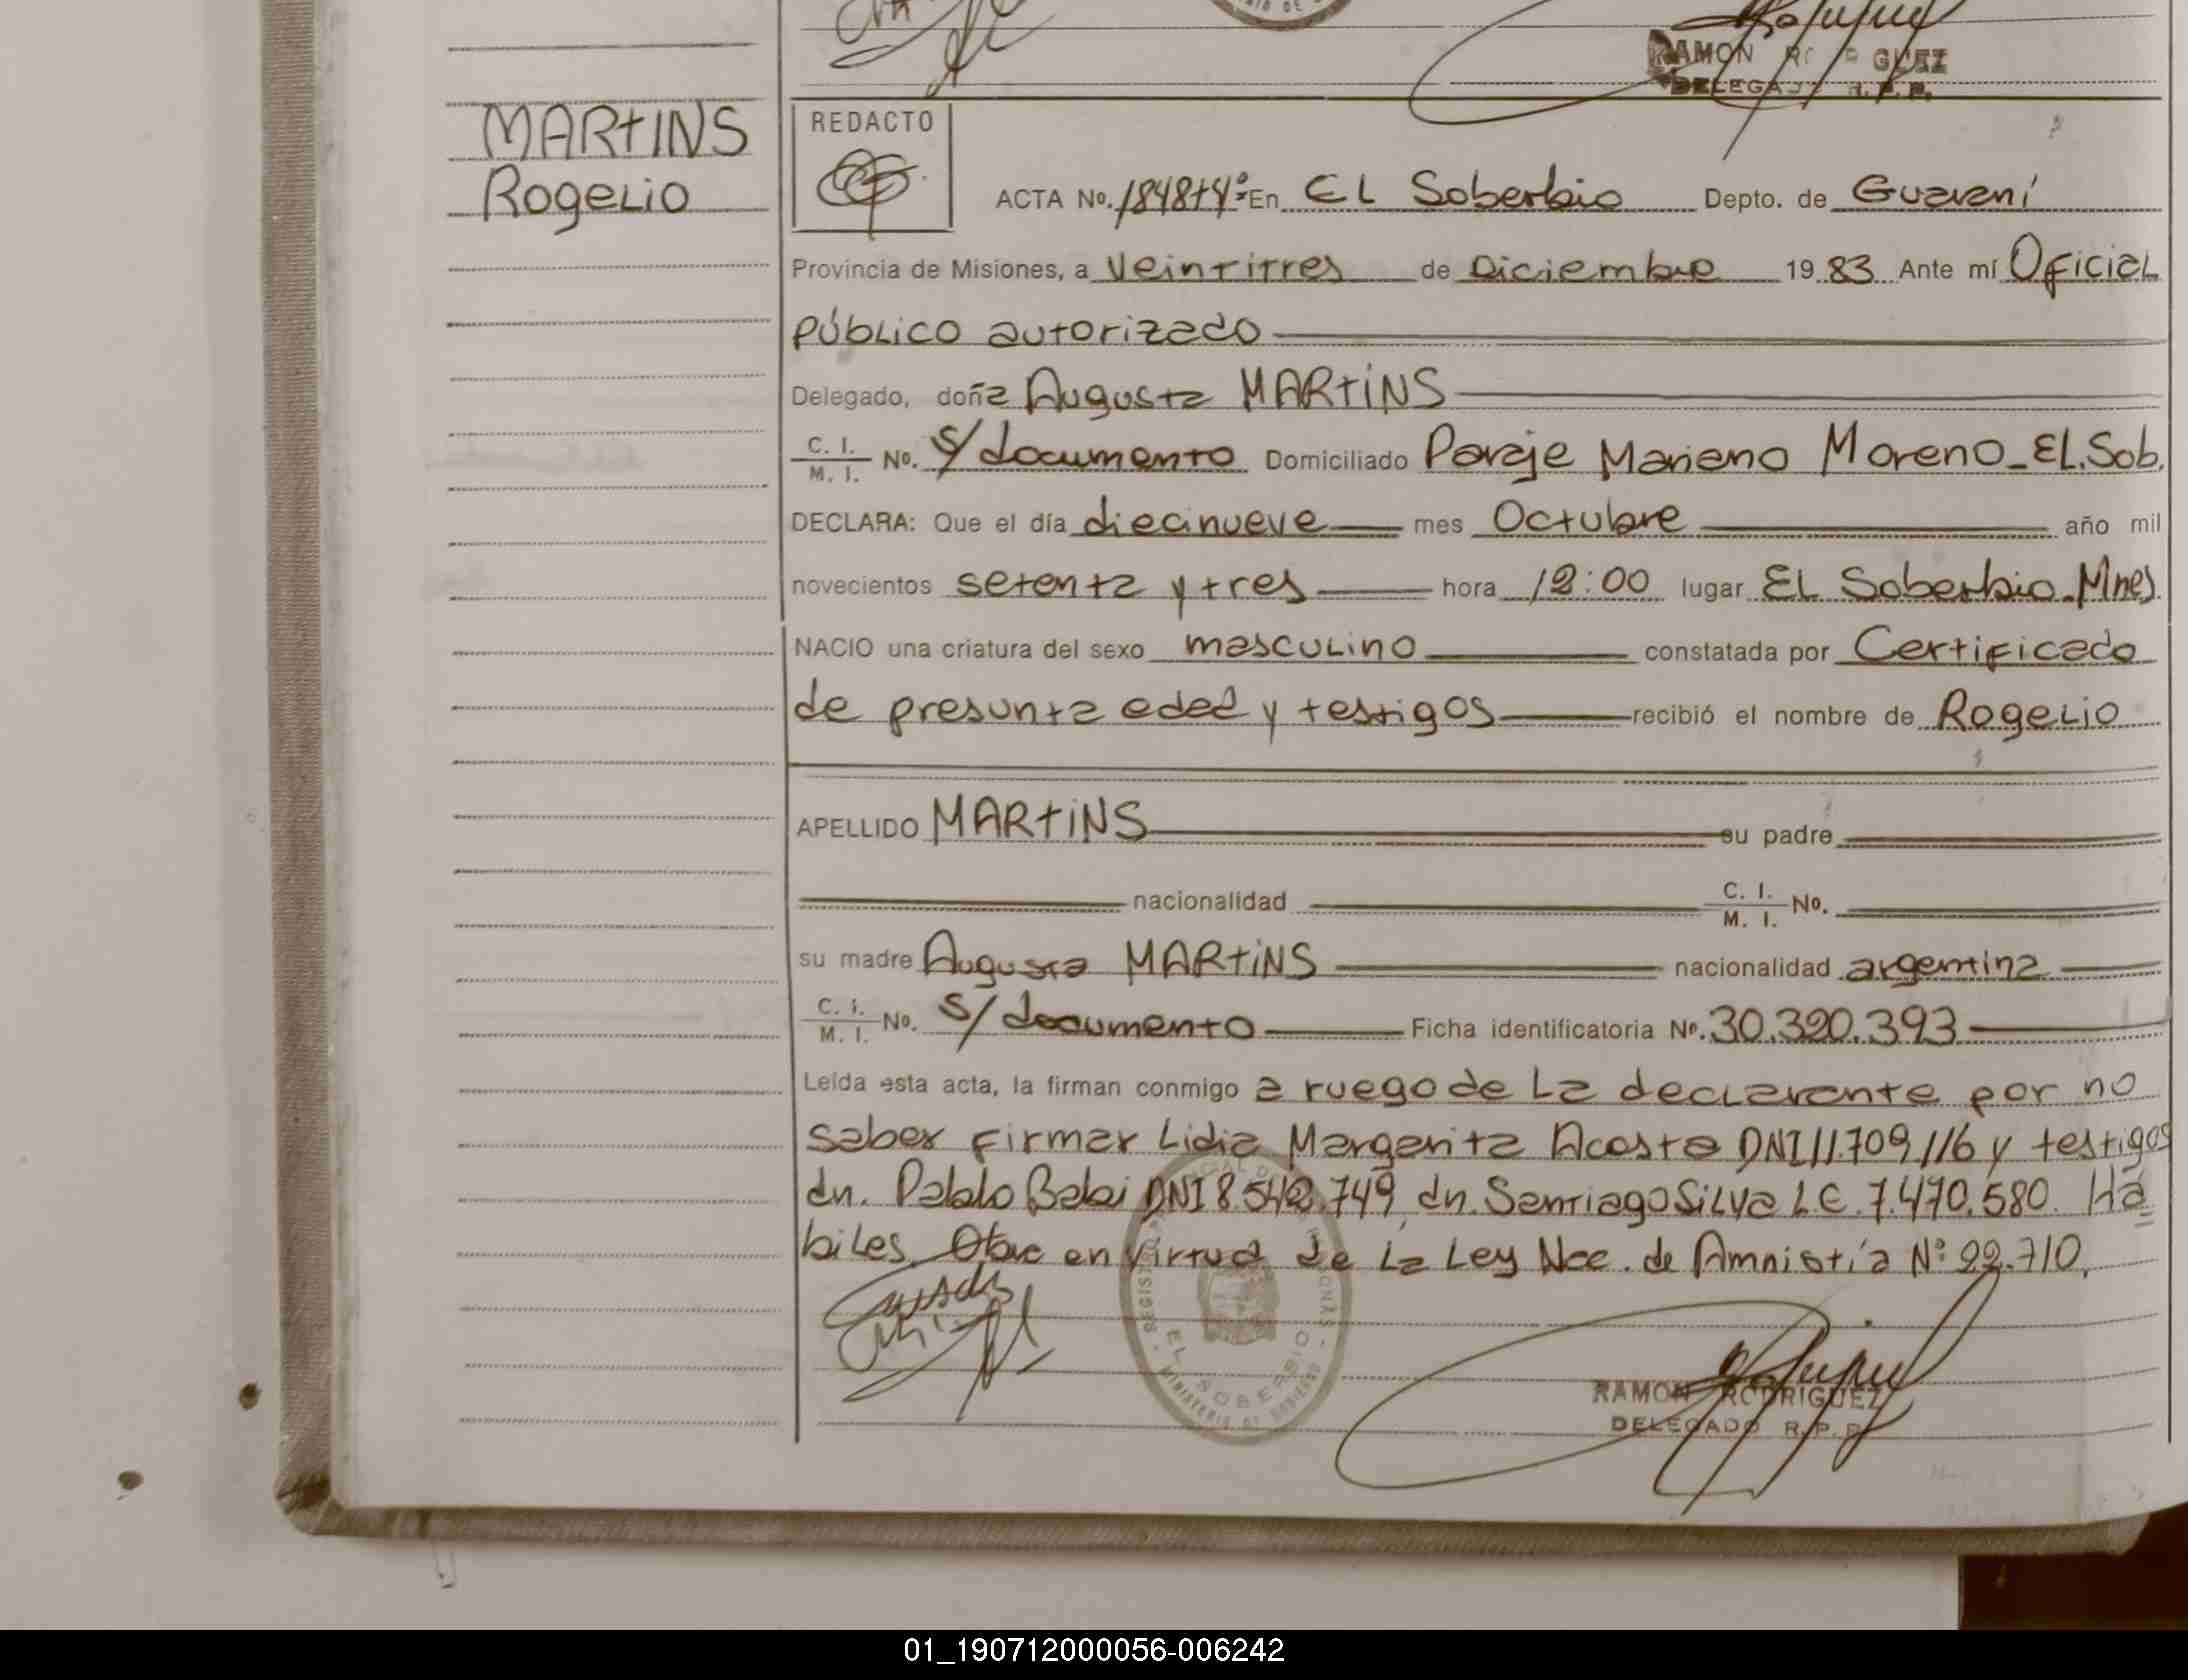 RAMON RODRIGUEZ
DELEGADO R.P.P.
MARTINS
Rogelio
REDACTO
ACTA No. 1848T4º En EL Soberbio Depto. de Guaraní
Provincia de Misiones, a Veintitres de Diciembre 19 83 Ante mí Oficial
Público autorizado
Delegado, doña Augusta MARTINS
C. I. M. I. No. S/documento Domiciliado Paraje Mariano Moreno_EL.Sob.
DECLARA: Que el día diecinueve mes Octubre año mil
novecientos setenta y tres hora 12:00 lugar EL Soberbio.Mnes
NACIO una criatura del sexo masculino constatada por Certificado
de presunta edad y testigos recibió el nombre de Rogelio
APELLIDO MARTINS su padre
nacionalidad C. I. M. I. No.
su madre Augusta MARTINS nacionalidad argentina
C. I. M. I. No. S/documento Ficha identificatoria No. 30.320.393
Leída esta acta, la firman conmigo a ruego de La declarante por no
saber firmar Lidia Margarita Acosta DNI 11.709.116 y testigos
dn. Pablo Babi DNI 8.542.749, dn. Santiago Silva L.E. 7.470.580. Há
biles. Obra en virtud de La Ley Nac. de Amnistía Nº 22.710.
EL SOBERBIO
MINISTERIO DE GOBIERNO
RAMON RODRIGUEZ
DELEGADO R.P.P.
01_190712000056-006242